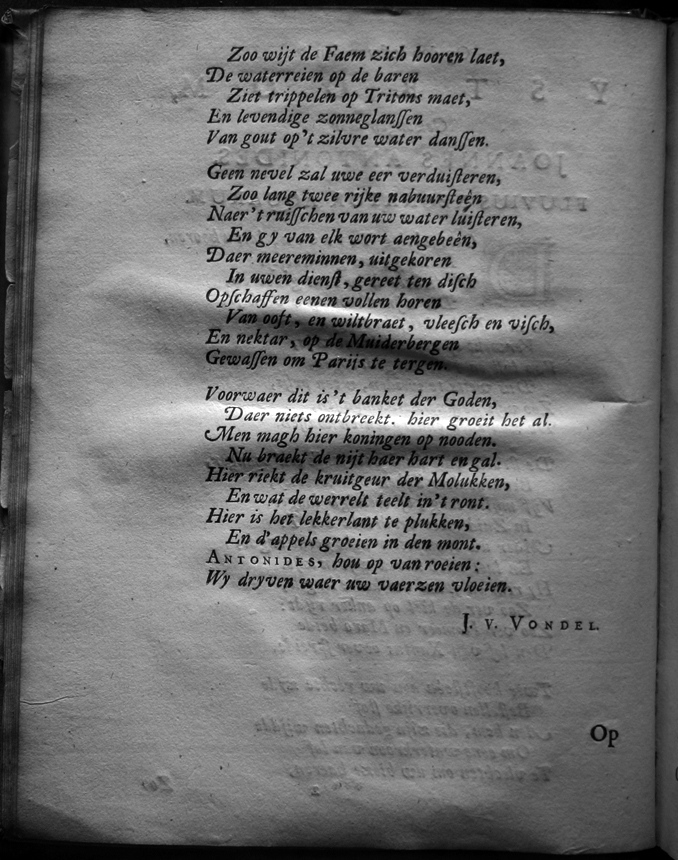 Zoo wijt de Faem zich hooren laet,
De waterreien op de baren
Ziet trippelen op Tritons maet,
En levendige zonneglanſſen
Van gout op't zilvre water danſſen.
Geen nevel zal uwe eer verduiſteren,
Zoo lang twee rijke nabuurſteên
Naer't ruiſſchen van uw water luiſteren,
En gy van elk wort aengebeên,
Daer meereminnen, uitgekoren
In uwen dienſt, gereet ten diſch
Opſchaffen eenen vollen horen
Van ooft, en wiltbraet, vleeſch en viſch,
En nektar, op de Muiderbergen
Gewaſſen om Parijs te tergen.
Voorwaer dit is't banket der Goden,
Daer niets ontbreekt. hier groeit het al.
Men magh hier koningen op nooden.
Nu braekt de nijt haer hart en gal.
Hier riekt de kruitgeur der Molukken,
En wat de werrelt teelt in't ront.
Hier is het lekkerlant te plukken,
En d'appels groeien in den mont.
ANTONIDES, hou op van roeien:
Wy dryven waer uw vaerzen vloeien.
J. V. VONDEL.
Op